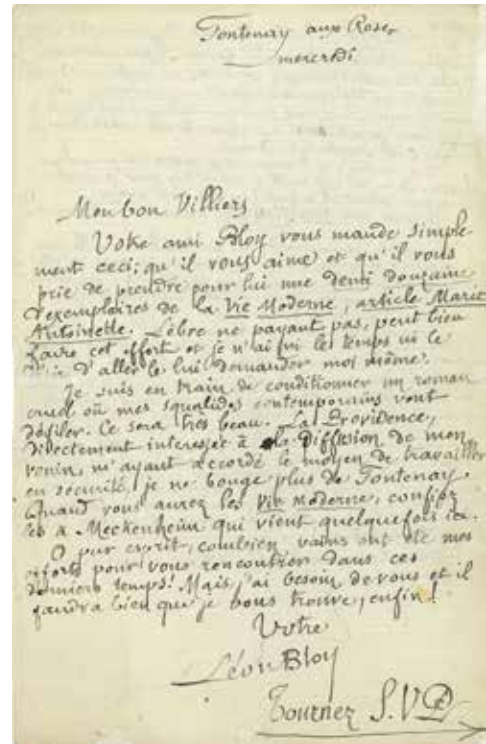 Fontenay aux Roses
mercredi
Mon bon Villiers
Votre ami Bloy vous mande simple-
ment ceci: qu'il vous aime et qu'il vous
prie de prendre pour lui une demi douzaine
d'exemplaires de la Vie Moderne, article Marie
Antoinette. Lèbre ne payant pas, peut bien
faire cet effort et je n'ai ni le temps ni le
d'aller le lui demander moi même.
Je suis en train de conditionner un roman
cruel où mes squalides contemporains vont
défiler. Ce sera très beau. La Providence,
directement interessée à la diffusion de mon
venin, m'ayant accordé le moyen de travailler
en sécurité, je ne bouge plus de Fontenay.
Quand vous aurez les Vie Moderne, confiez
les à Meckenheim qui vient quelquefois ici.
O pur esprit, combien vains ont été mes
efforts pour vous rencontrer dans ces
derniers temps! Mais, j'ai besoin de vous et il
faudra bien que je vous trouve, enfin!
Votre
Léon Bloy
Tournez S.V.P.